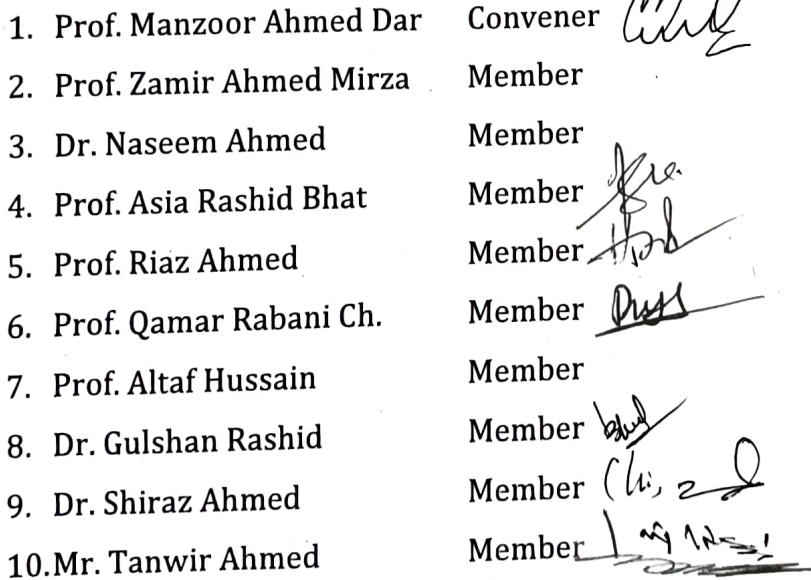 1. Prof. Manzoor Ahmed Dar Convener
2. Prof. Zamir Ahmed Mirza Member
3. Dr. Naseem Ahmed Member
4. Prof. Asia Rashid Bhat Member
5. Prof. Riaz Ahmed Member
6. Prof. Qamar Rabani Ch. Member
7. Prof. Altaf Hussain Member
8. Dr. Gulshan Rashid Member
9. Dr. Shiraz Ahmed Member
10.Mr. Tanwir Ahmed Member